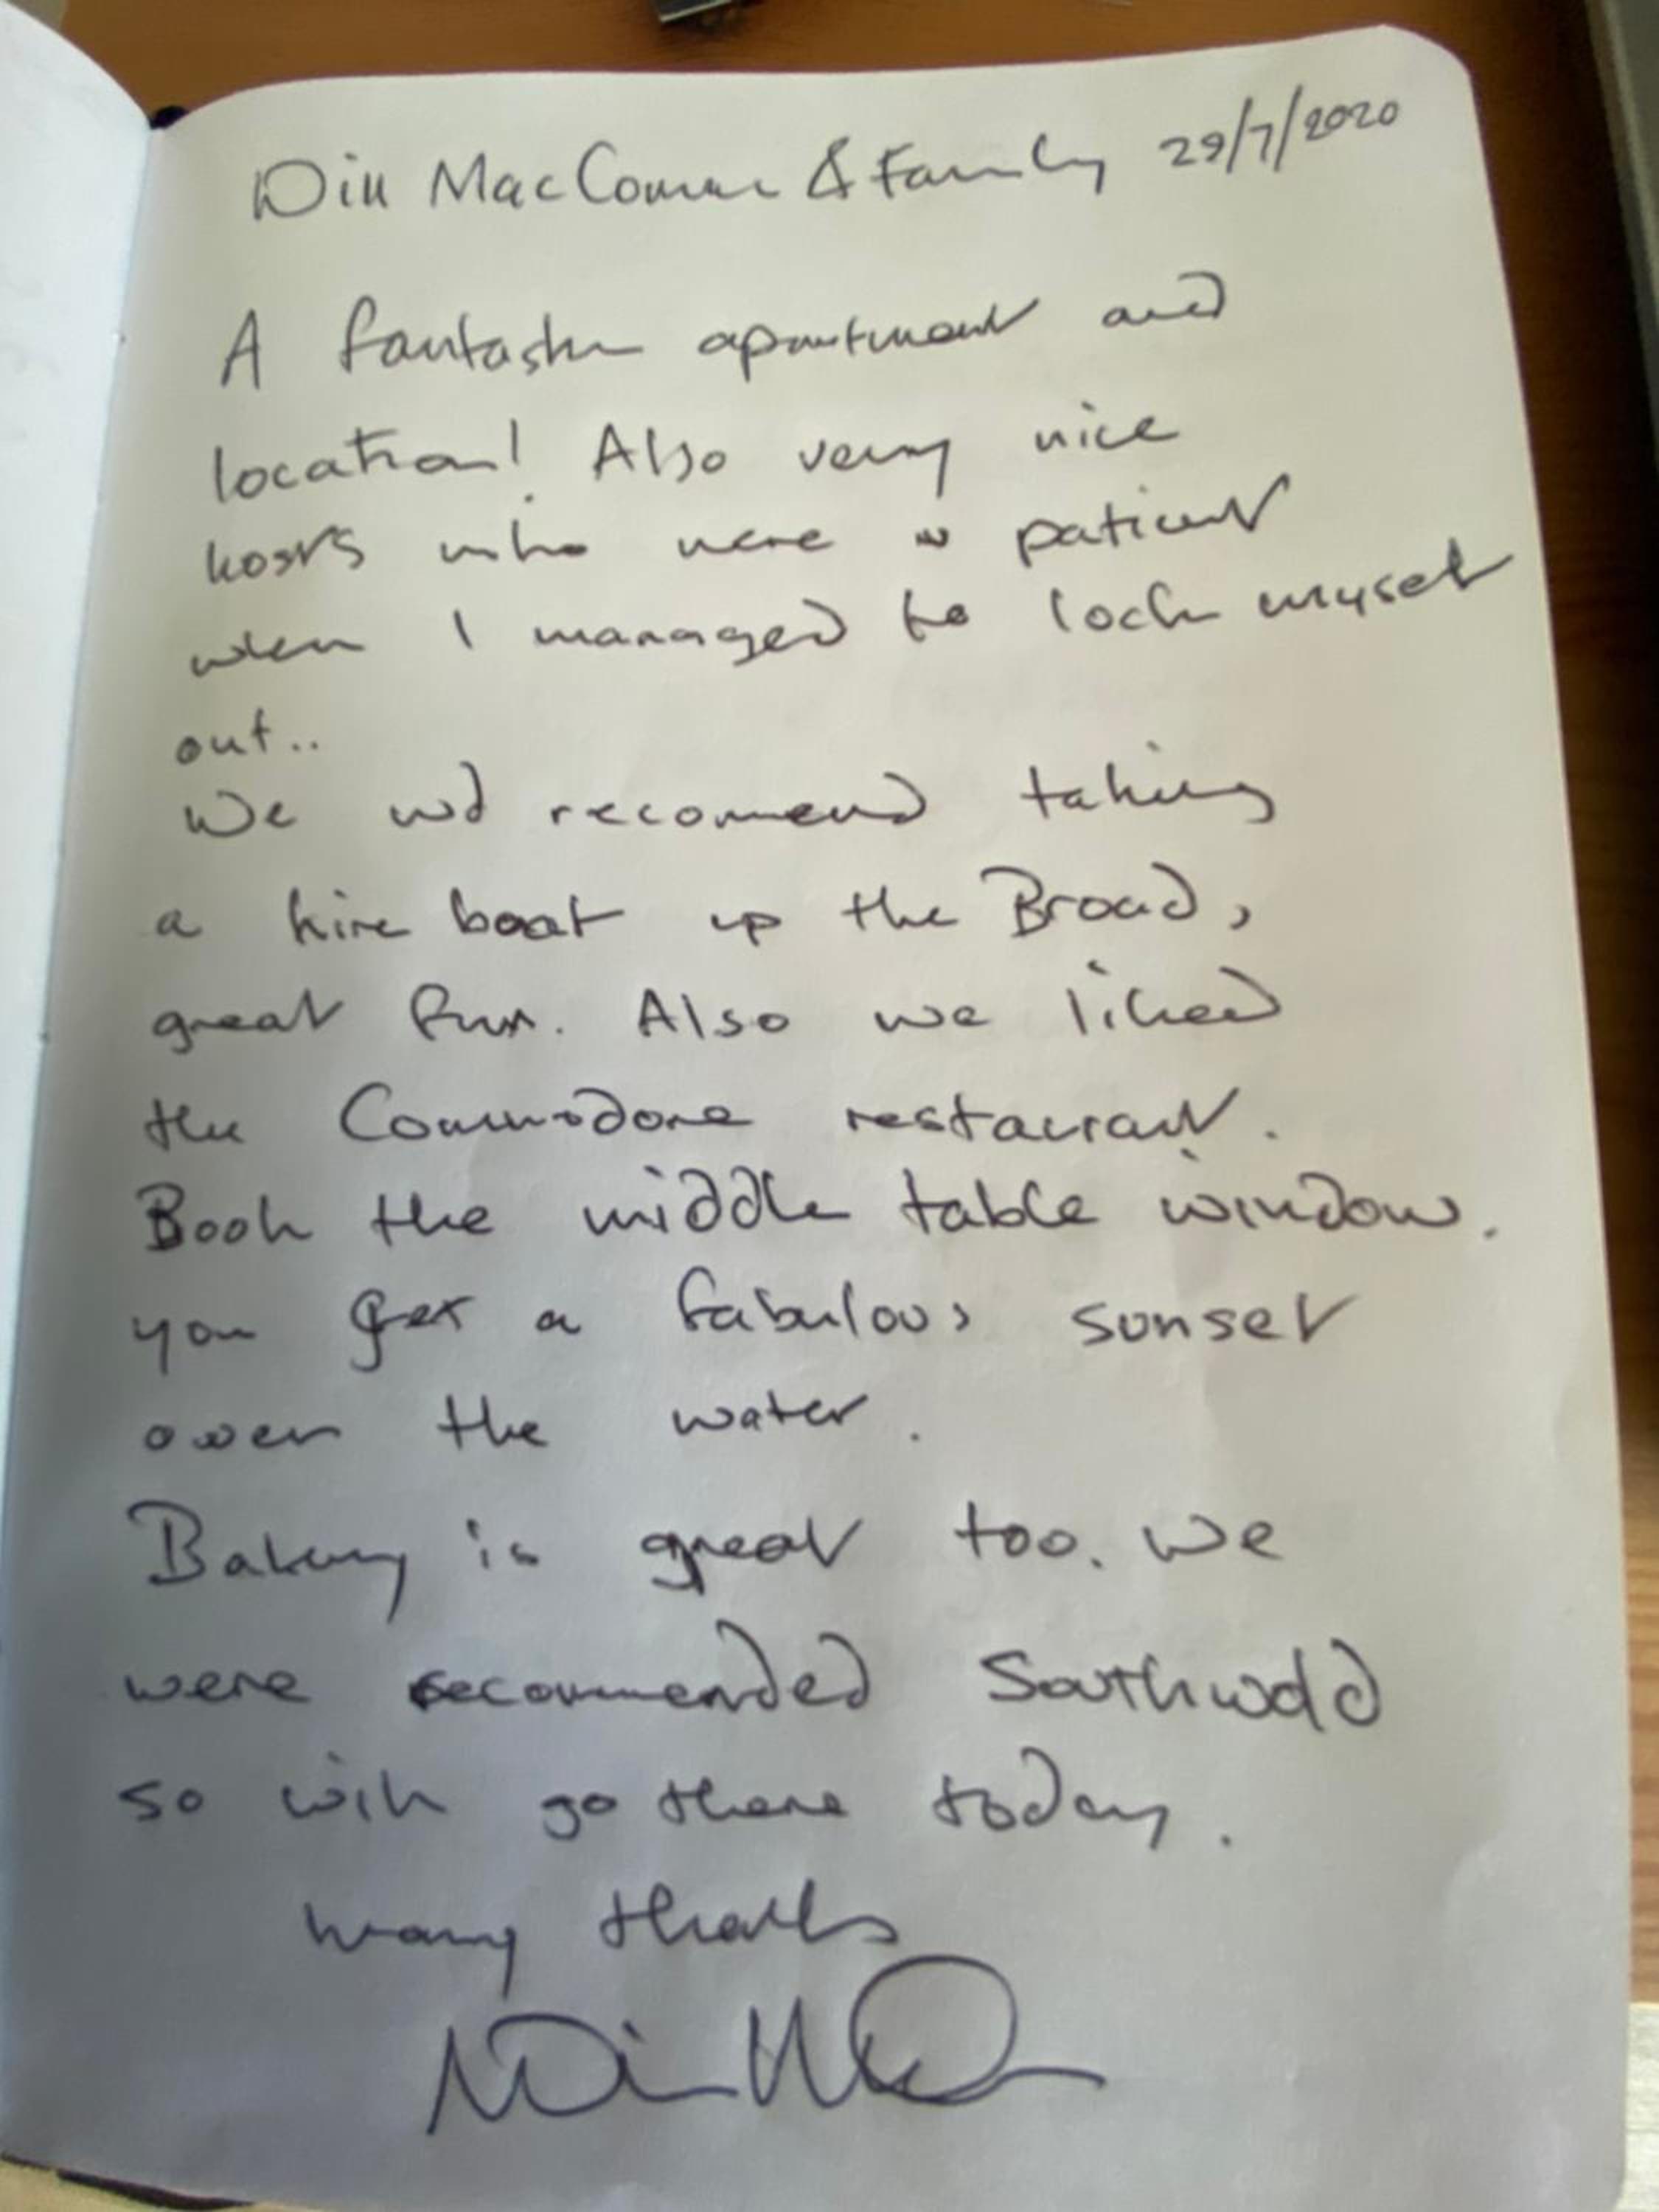 MacCowan & Family 29/7/2020
A fantastic apartment and
location! Also very nice
hosts who were patient
when I managed to lock myself
out..
We wd recomend taking
a hire boat up the Broad,
great fun. Also we liked
the Commodore restaurant.
Book the middle table window.
you get a fabulous sunset
over the water.
Bakery is great too. We
were recommended Southwold
so will go there today.
Many thanks